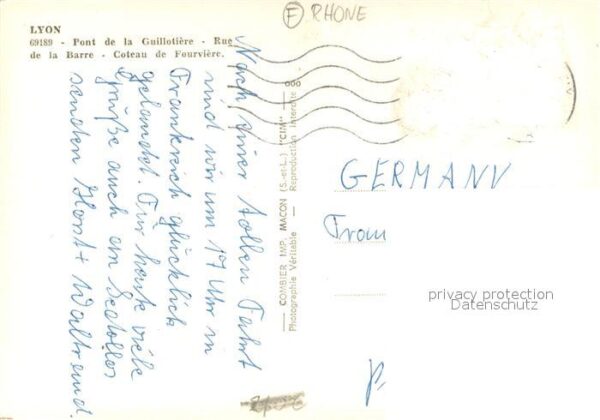 F RHONE
LYON
69189 - Pont de la Guillotière - Rue
de la Barre - Coteau de Fourvière.
Nach einer tollen Fahrt
sind wir um 17 Uhr in
Frankreich glücklich
gelandet. Für heute viele
Grüße auch an
senden Horst + Waltraud.
COMBIER IMP. MACON (S.-et-L.) "CIM"
Photographie Véritable - Reproduction interdite
GERMANY
Frau
privacy protection
Datenschutz